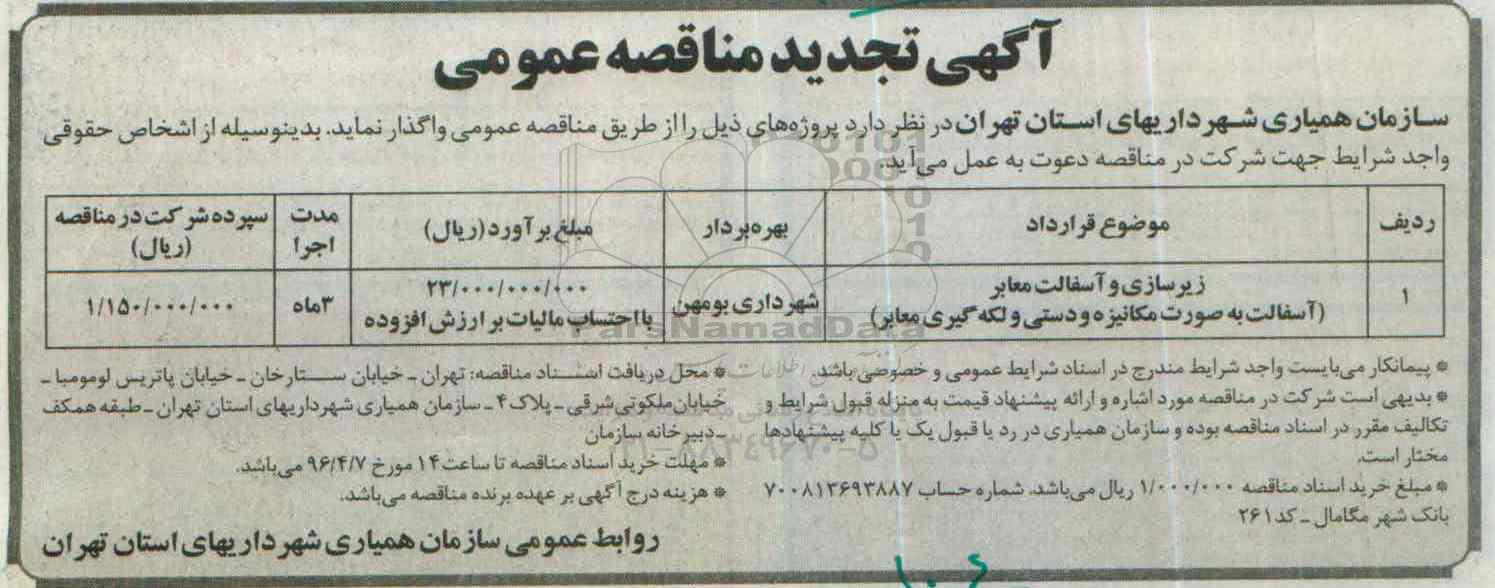 آگهی تجدید مناقصه عمومی
سازمان همیاری شهرداریهای استان تهران در نظر دارد پروژه‌های ذیل را از طریق مناقصه عمومی واگذار نماید. بدینوسیله از اشخاص حقوقی
واجد شرایط جهت شرکت در مناقصه دعوت به عمل می‌آید.
ردیف | موضوع قرارداد | بهره‌بردار | مبلغ برآورد (ریال) | مدت اجرا | سپرده شرکت در مناقصه (ریال)
۱ | زیرسازی و آسفالت معابر (آسفالت به صورت مکانیزه و دستی و لکه گیری معابر) | شهرداری بومهن | ۲۳/۰۰۰/۰۰۰/۰۰۰ با احتساب مالیات بر ارزش افزوده | ۳ماه | ۱/۱۵۰/۰۰۰/۰۰۰
ParsNamadData
* پیمانکار می‌بایست واجد شرایط مندرج در اسناد شرایط عمومی و خصوصی باشد.
* بدیهی است شرکت در مناقصه مورد اشاره و ارائه پیشنهاد قیمت به منزله قبول شرایط و
تکالیف مقرر در اسناد مناقصه بوده و سازمان همیاری در رد یا قبول یک یا کلیه پیشنهادها
مختار است.
* مبلغ خرید اسناد مناقصه ۱/۰۰۰/۰۰۰ ریال می‌باشد. شماره حساب ۷۰۰۸۱۳۶۹۳۸۸۷
بانک شهر مگامال ـ کد ۲۶۱
* محل دریافت اسناد مناقصه: تهران ـ خیابان ستارخان ـ خیابان پاتریس لومومبا ـ
خیابان ملکوتی شرقی ـ پلاک ۴ ـ سازمان همیاری شهرداریهای استان تهران ـ طبقه همکف
ـ دبیرخانه سازمان
* مهلت خرید اسناد مناقصه تا ساعت ۱۴ مورخ ۹۶/۴/۷ می‌باشد.
* هزینه درج آگهی بر عهده برنده مناقصه می‌باشد.
روابط عمومی سازمان همیاری شهرداریهای استان تهران